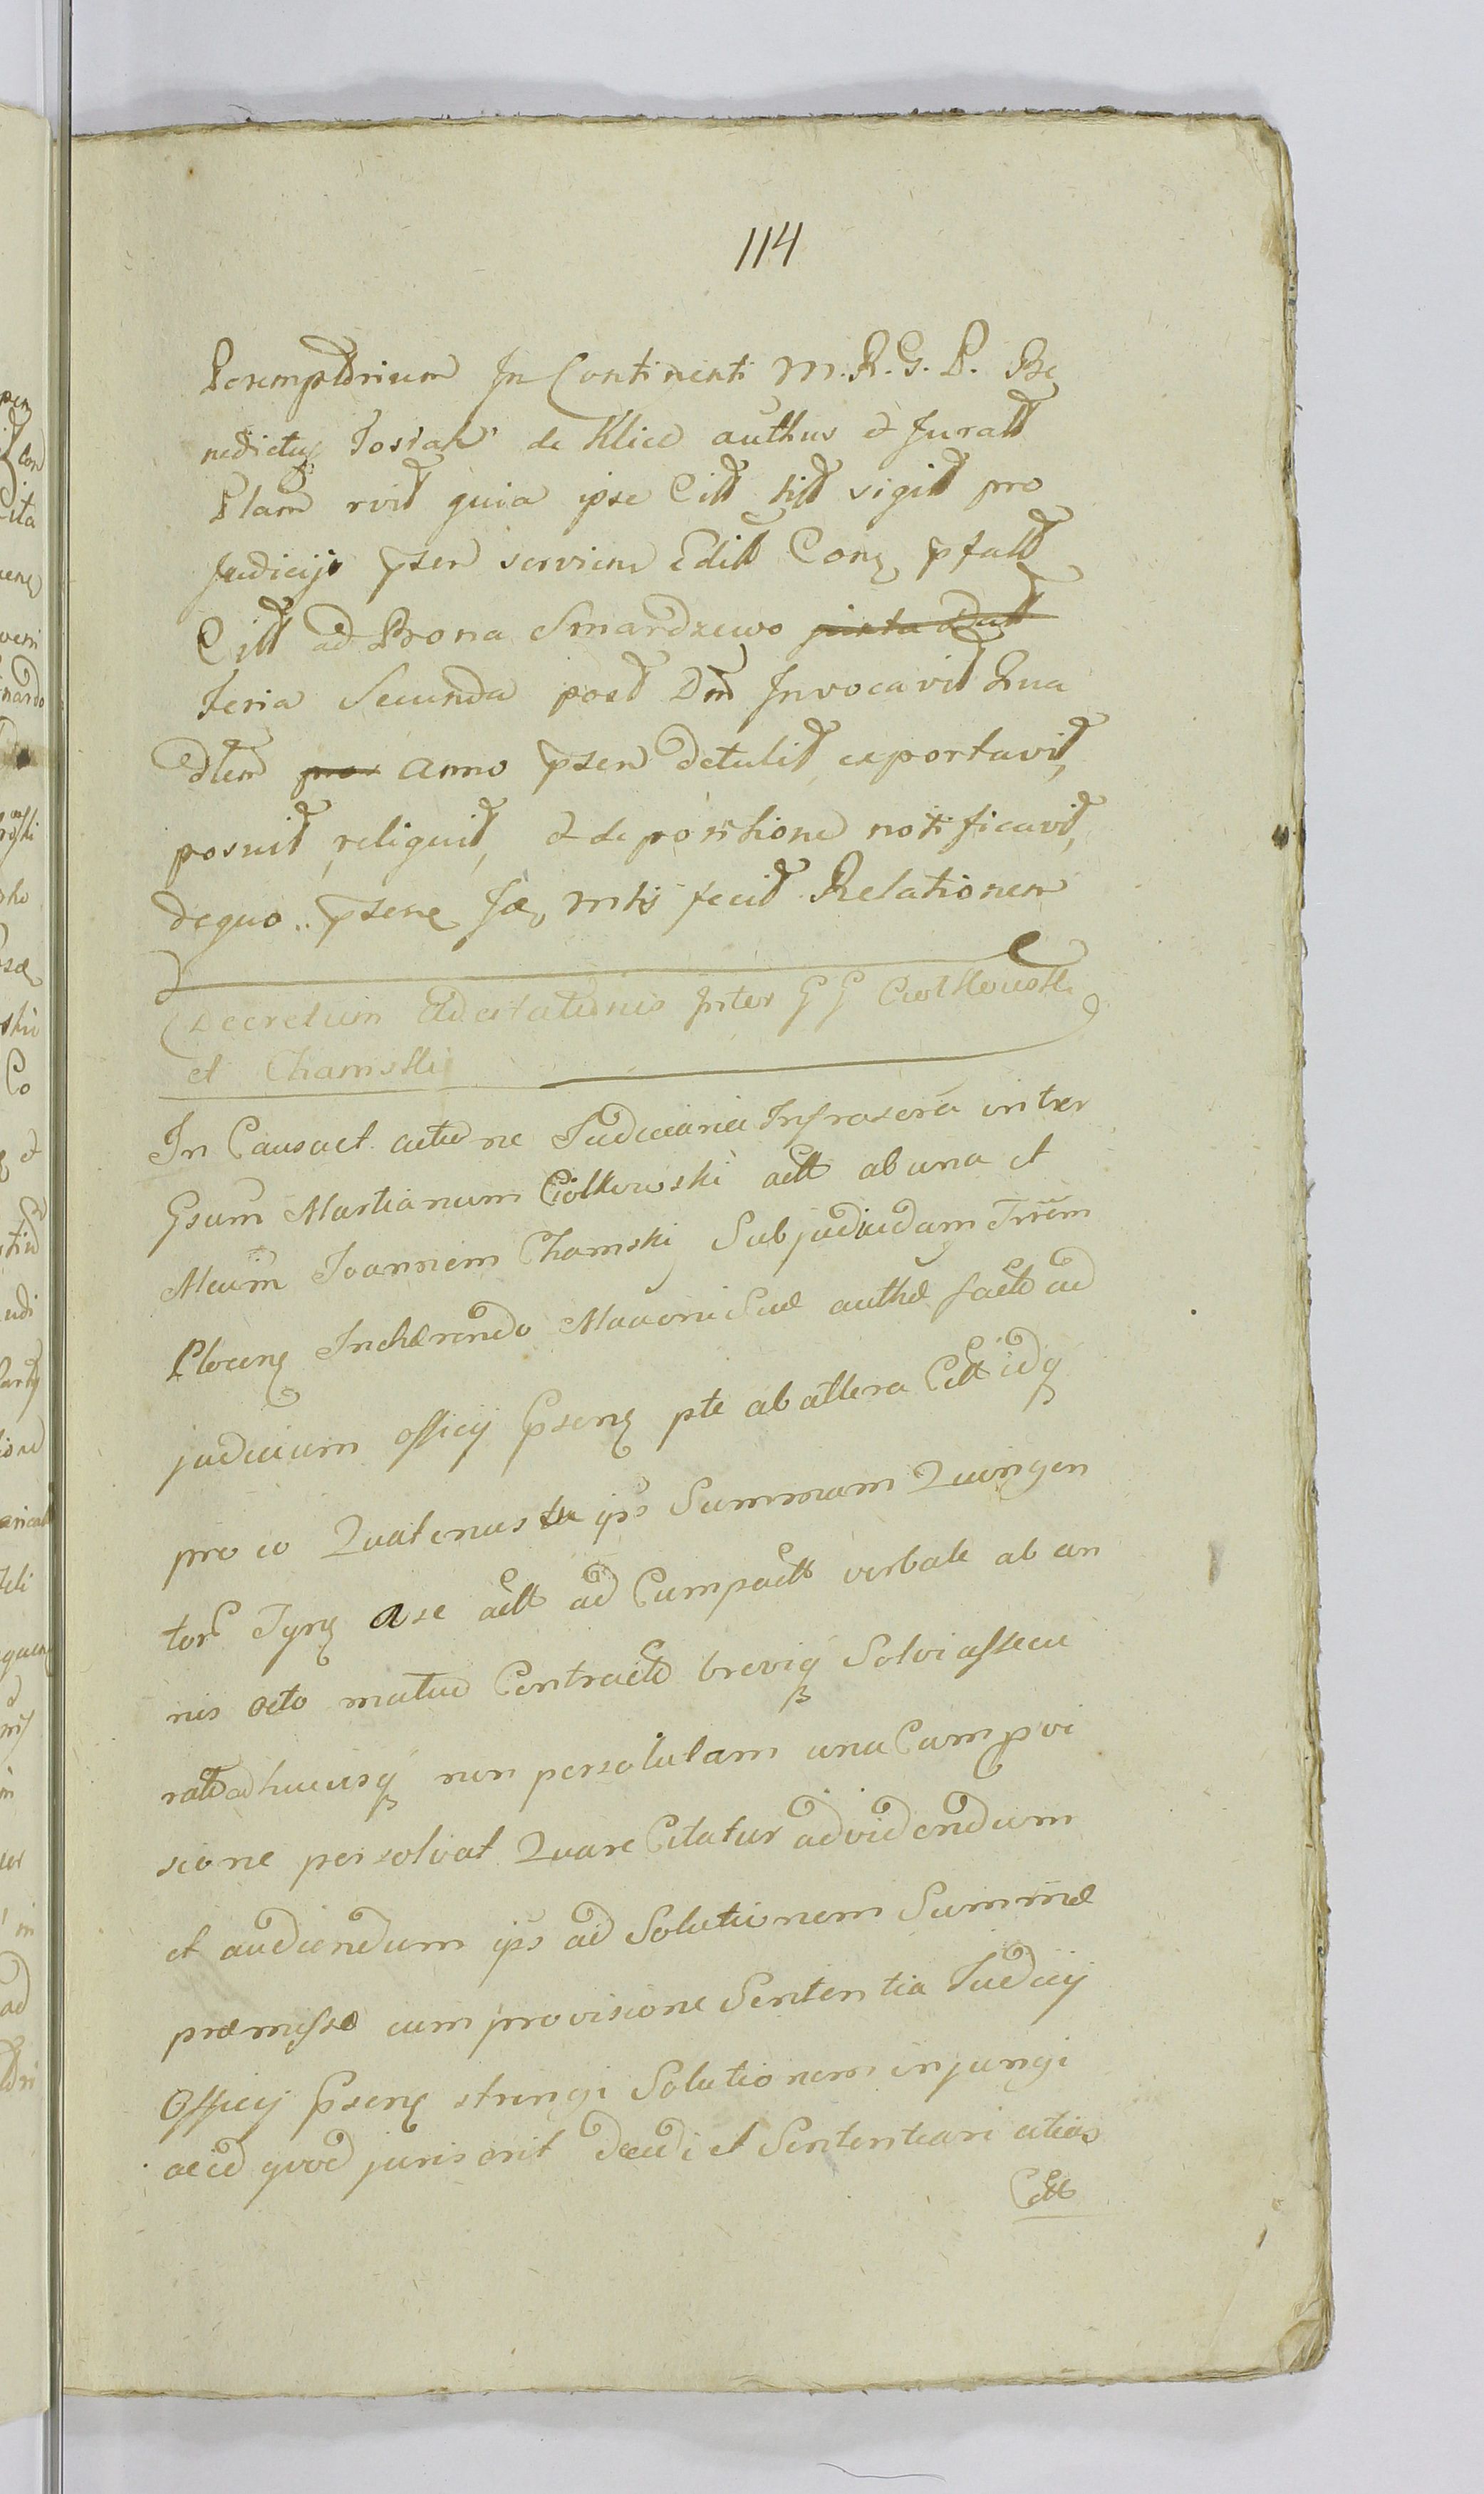 114
Peremptorium In Continenti M. R. G. P. Be
nedictus Tosiak de Klice authus et Juratt
Plam rvit quia ipse Citt titt sigitt pro
Judicijs psen servien Editt Cons psatt
Citt ad Bona Smardzewo juxta Datt
Feria Secunda post Dm Invocavit Qua
dlem pros anno psen detulit exportavit,
posuit reliquit, et de positione notificavit,
dequo psens Jae Mtis fecit Relationem
Decretum Adcitationis Inter GG Ciolkowski
et Chamski
In Causa et actione Judiciaria Infrascra inter
Gsum Martianum Ciolkowski actt ab una et
Mcum Joannem Chamski Subjudicidam Trrem
Plocens Inchærendo Mavoni Suæ authæ factæ ad
judicium officij Psens pte ab altera Citt idq
pro eo Quatenus ips Summam Quingen
tor Tynf a se actt ad Compactt verbale ab an
nis octo mutuo Contracte breviq Solvi assecu
ratt adhucusq non persolutam una Cum provi
sione persolvat Quare Citatur ad videndum
et audiendum ips ad Solutionem Summæ
præmissæ cum provisione Sententia Judicij
Officij Psens stringi Solutionem injungi
ac id quod juris erit decidi et Sententiari citias
Citt